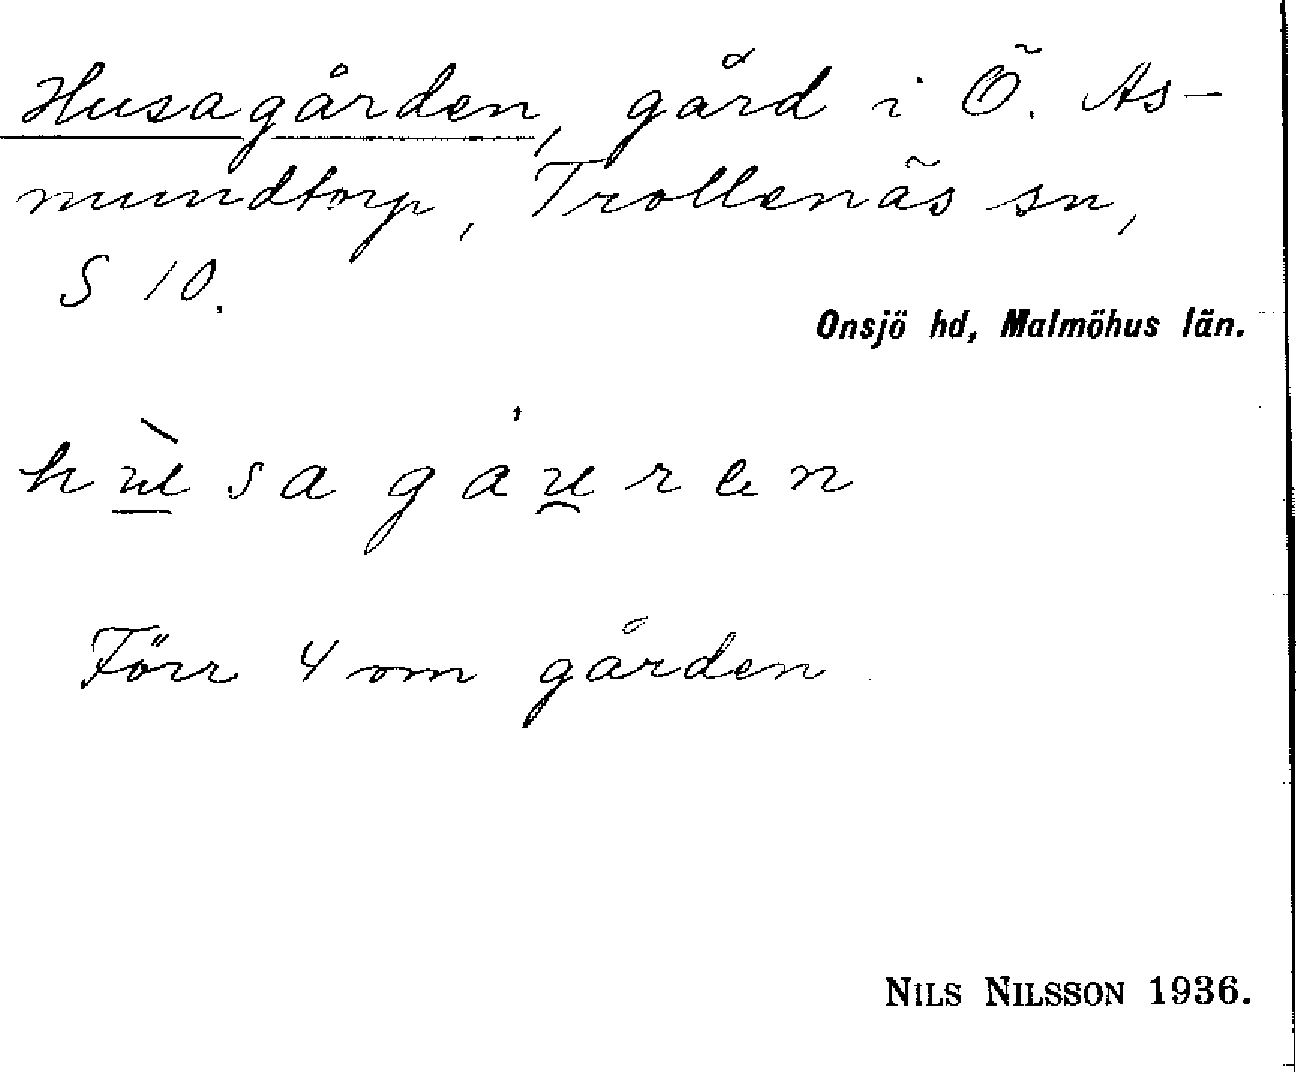 Husagården, gård i Ö. As-
mundtorp, Trollenäs sn,
S 10.
Onsjö hd, Malmöhus län.
hùsa gáu̯ren
Förr 4 om gården
NILS NILSSON 1936.